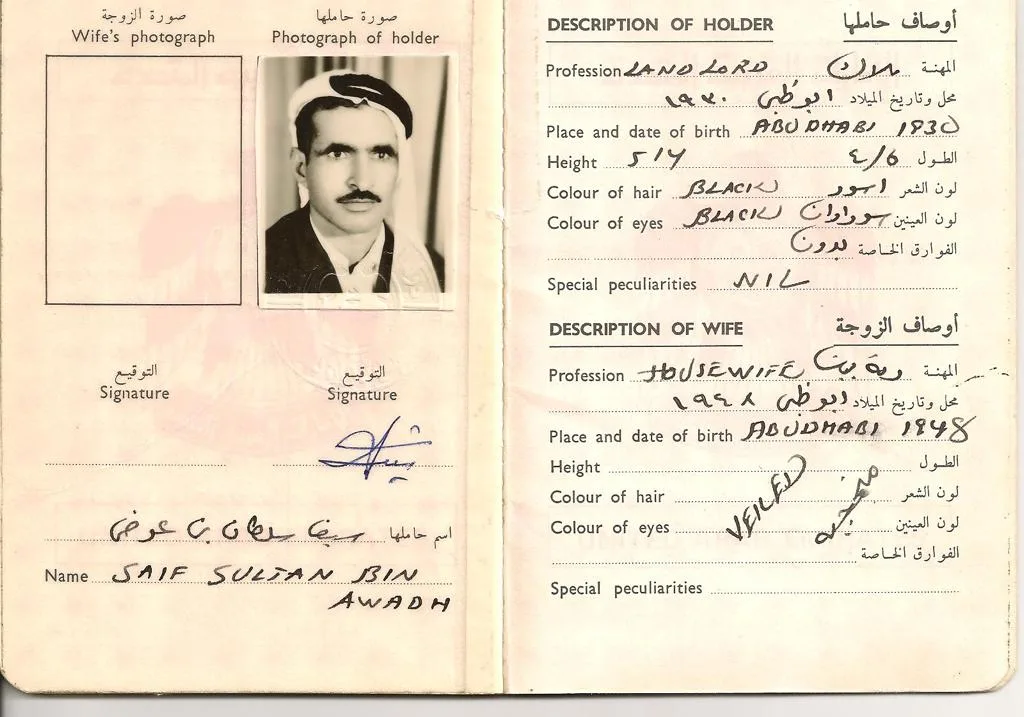 صورة الزوجة
Wife's photograph
صورة حاملها
Photograph of holder
التوقيع
Signature
التوقيع
Signature
اسم حاملها سيف سلطان بن عوض
Name SAIF SULTAN BIN
AWADH
DESCRIPTION OF HOLDER أوصاف حاملها
Profession LAND LORD ملاك المهنة
محل وتاريخ الميلاد ابوظبي ١٩٣٠
Place and date of birth ABUDHABI 1930
Height 5/4 ٤/٥ الطول
Colour of hair BLACK اسود لون الشعر
Colour of eyes BLACK سوداوان لون العينين
الفوارق الخاصة بدون
Special peculiarities NIL
DESCRIPTION OF WIFE أوصاف الزوجة
Profession HOUSEWIFE ربة بيت المهنة
محل وتاريخ الميلاد ابوظبي ١٩٤٨
Place and date of birth ABUDHABI 1948
Height الطول
Colour of hair لون الشعر
Colour of eyes VEILED لون العينين
الفوارق الخاصة
Special peculiarities